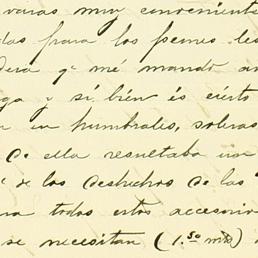 varias muy convenientes
das para los peones les
dera q.e me mandó an
ga y si bien és cierto
n un humbrales, sobras
C de ella resultaba un
" de los deshechos de las
ra todos estos accesorio
se necesitan (1.50 mts)